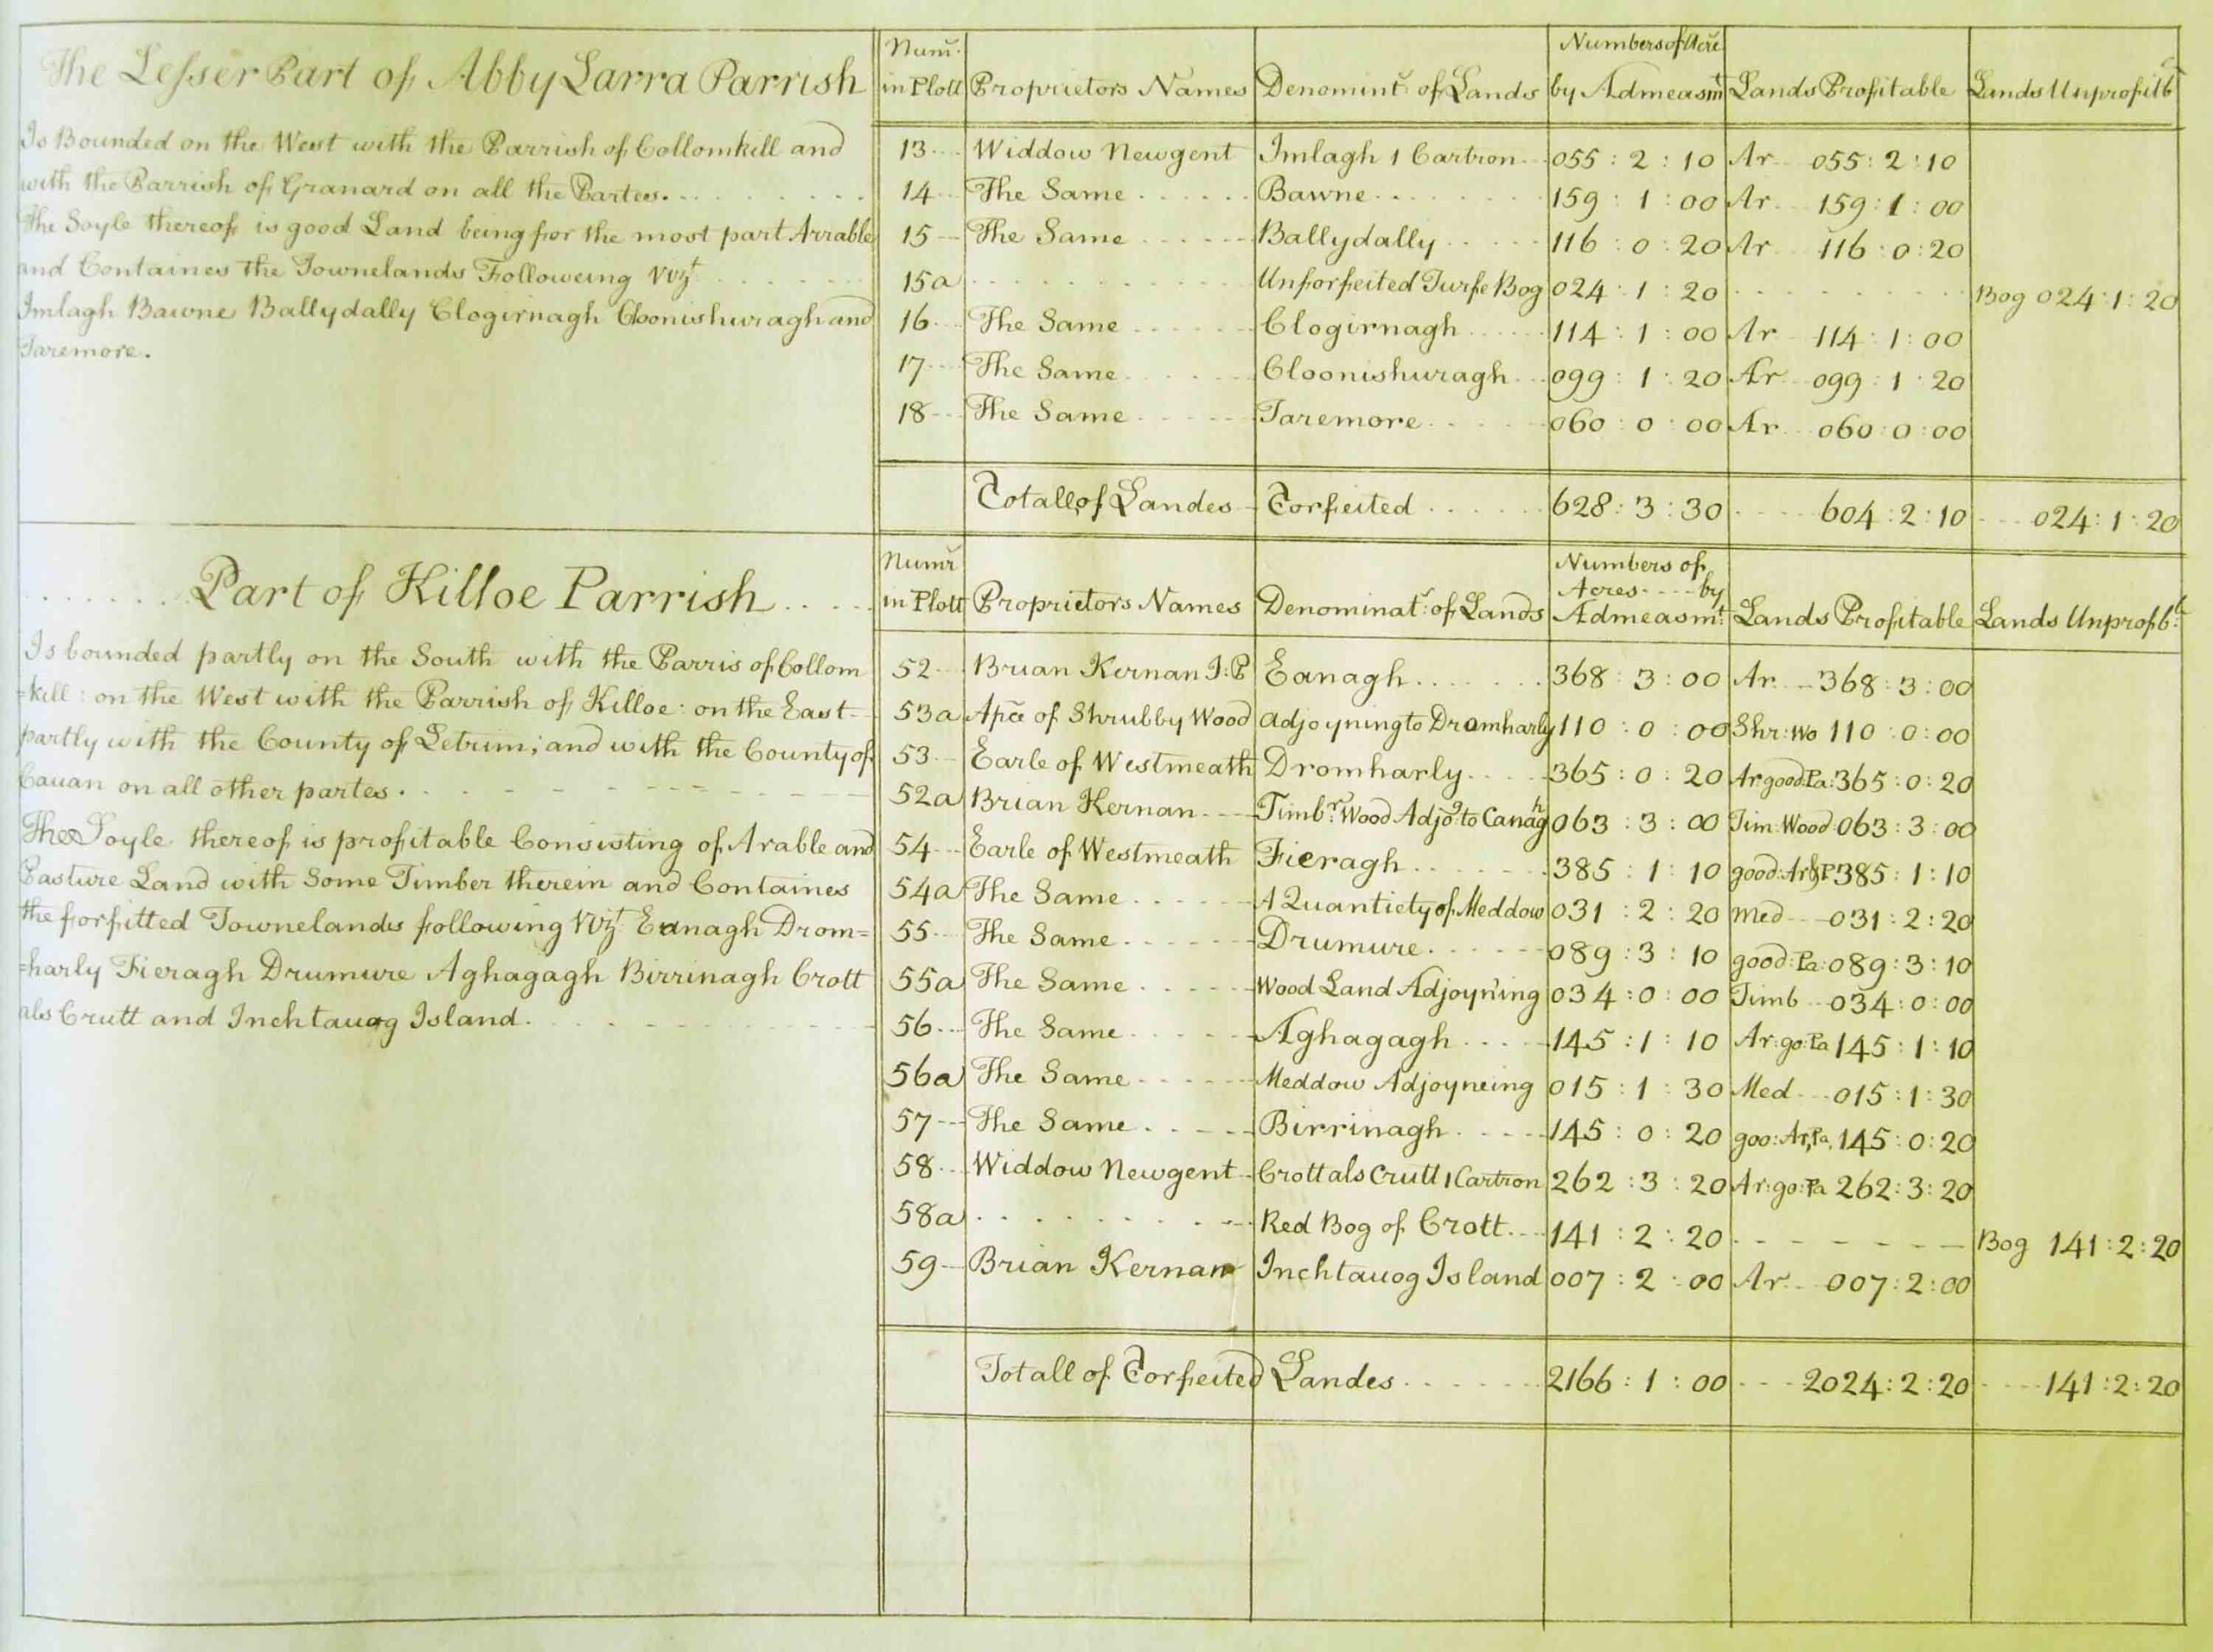 The Lesser Part of Abby Larra Parrish
Is Bounded on the West with the Parrish of Collomkill and
with the Parrish of Granard on all the Partes.
The Soyle thereof is good Land being for the most part Arrable
and Containes the Townelands Following Vizt
Imlagh Bawne Ballydally Clogirnagh Cloonishuragh and
Taremore.
Numr. in Plott Proprietors Names Denomint. of Lands Numbers of Acre by Admeasmt Lands Profitable Lands Unprofitb
13 Widdow Newgent Imlagh 1 Cartron 055 : 2 : 10 Ar 055 : 2 : 10
14 The Same Bawne 159 : 1 : 00 Ar 159 : 1 : 00
15 The Same Ballydally 116 : 0 : 20 Ar 116 : 0 : 20
15a Unforfeited Turfe Bog 024 : 1 : 20 Bog 024 : 1 : 20
16 The Same Clogirnagh 114 : 1 : 00 Ar 114 : 1 : 00
17 The Same Cloonishuragh 099 : 1 : 20 Ar 099 : 1 : 20
18 The Same Taremore 060 : 0 : 00 Ar 060 : 0 : 00
Totall of Landes Forfeited 628 : 3 : 30 604 : 2 : 10 024 : 1 : 20
Part of Killoe Parrish
Is bounded partly on the South with the Parris of Collom
=kill : on the West with the Parrish of Killoe : on the East
partly with the County of Letrim; and with the County of
Cauan on all other partes.
The Soyle thereof is profitable Consisting of Arable and
Pasture Land with Some Timber therein and Containes
the forfitted Townelands following Vizt Eanagh Drom=
=harly Fieragh Drumure Aghagagh Birrinagh Crott
als Crutt and Inchtauog Island.
Numr in Plott Proprietors Names Denominat: of Lands Numbers of Acres by Admeasmt: Lands Profitable Lands Unprofb:t
52 Brian Kernan I:P Eanagh 368 : 3 : 00 Ar 368 : 3 : 00
53a Apce of Shrubby Wood adjoyning to Dromharly 110 : 0 : 00 Shr: Wo 110 : 0 : 00
53 Earle of Westmeath Dromharly 365 : 0 : 20 Ar good Pa: 365 : 0 : 20
52a Brian Kernan Timbr: Wood Adjog to Canagh 063 : 3 : 00 Tim: Wood 063 : 3 : 00
54 Earle of Westmeath Fieragh 385 : 1 : 10 good: Ar & P 385 : 1 : 10
54a The Same A Quantiety of Meddow 031 : 2 : 20 Med 031 : 2 : 20
55 The Same Drumure 089 : 3 : 10 good: Pa: 089 : 3 : 10
55a The Same Wood Land Adjoyning 034 : 0 : 00 Timb 034 : 0 : 00
56 The Same Aghagagh 145 : 1 : 10 Ar: go: Pa 145 : 1 : 10
56a The Same Meddow Adjoyneing 015 : 1 : 30 Med 015 : 1 : 30
57 The Same Birrinagh 145 : 0 : 20 goo: Ar, Pa, 145 : 0 : 20
58 Widdow Newgent Crott als Crutt 1 Cartron 262 : 3 : 20 Ar: go: Pa 262 : 3 : 20
58a Red Bog of Crott 141 : 2 : 20 Bog 141 : 2 : 20
59 Brian Kernan Inchtauog Island 007 : 2 : 00 Ar 007 : 2 : 00
Totall of Forfeited Landes 2166 : 1 : 00 2024 : 2 : 20 141 : 2 : 20